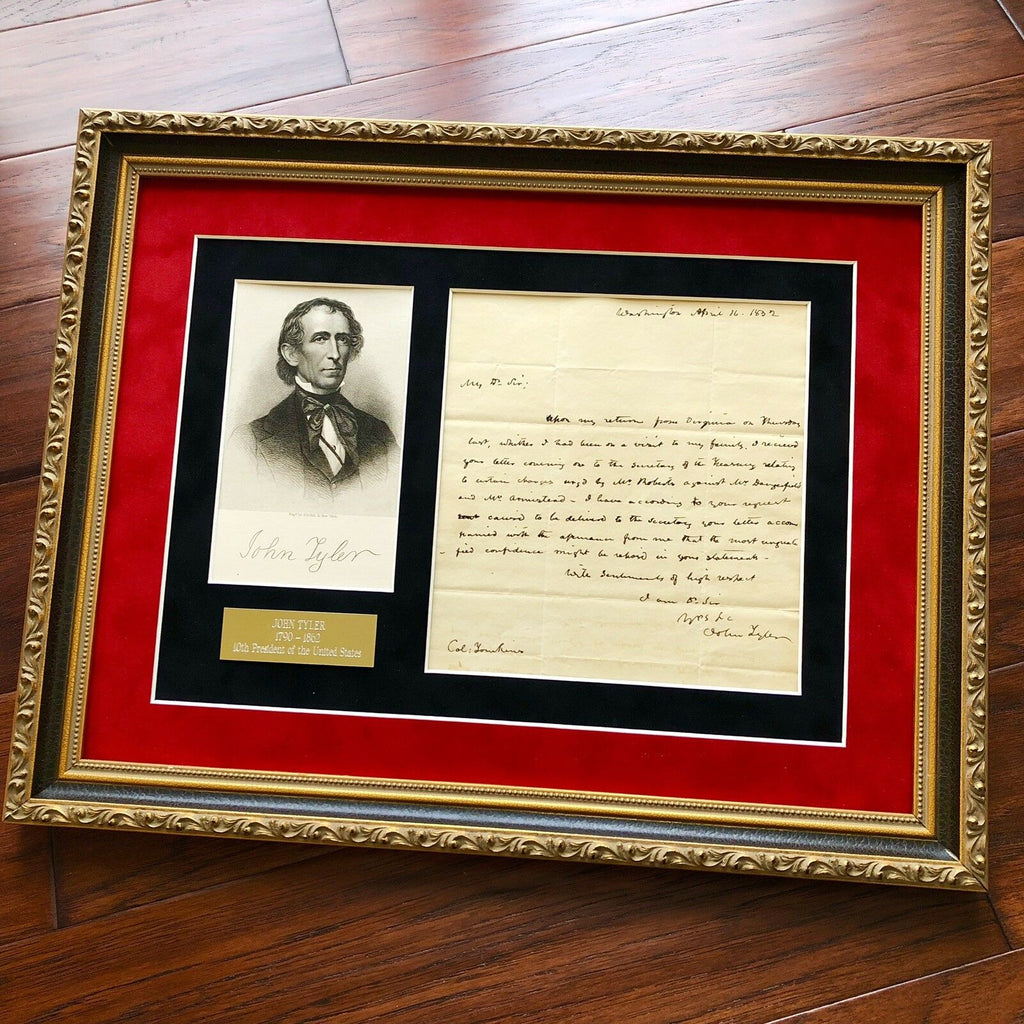 John Tyler
JOHN TYLER
1790 – 1862
10th President of the United States
Washington April 16. 1832
My Dr. Sir;
Upon my return from Virginia on Thursday
last, whither I had been on a visit to my family, I recieved
your letter covering one to the Secretary of the Treasury relating
to certain charges urgd by Mr Roberts against Mr Dangerfield
and Mr. Armistead - I have according to your request
caused to be delivered to the Secretary your letter accom
panied with the assurance from me that the most unquali
fied confidence might be reposd in your statements -
With Sentiments of high respect
I am Dr Sir
Yrs &c
John Tyler
Col: Tomkins